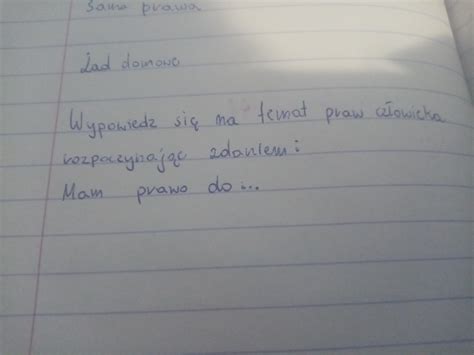 same prawa
Zad domowe
Wypowiedz się na temat praw człowieka
rozpoczynając zdaniem:
Mam prawo do...